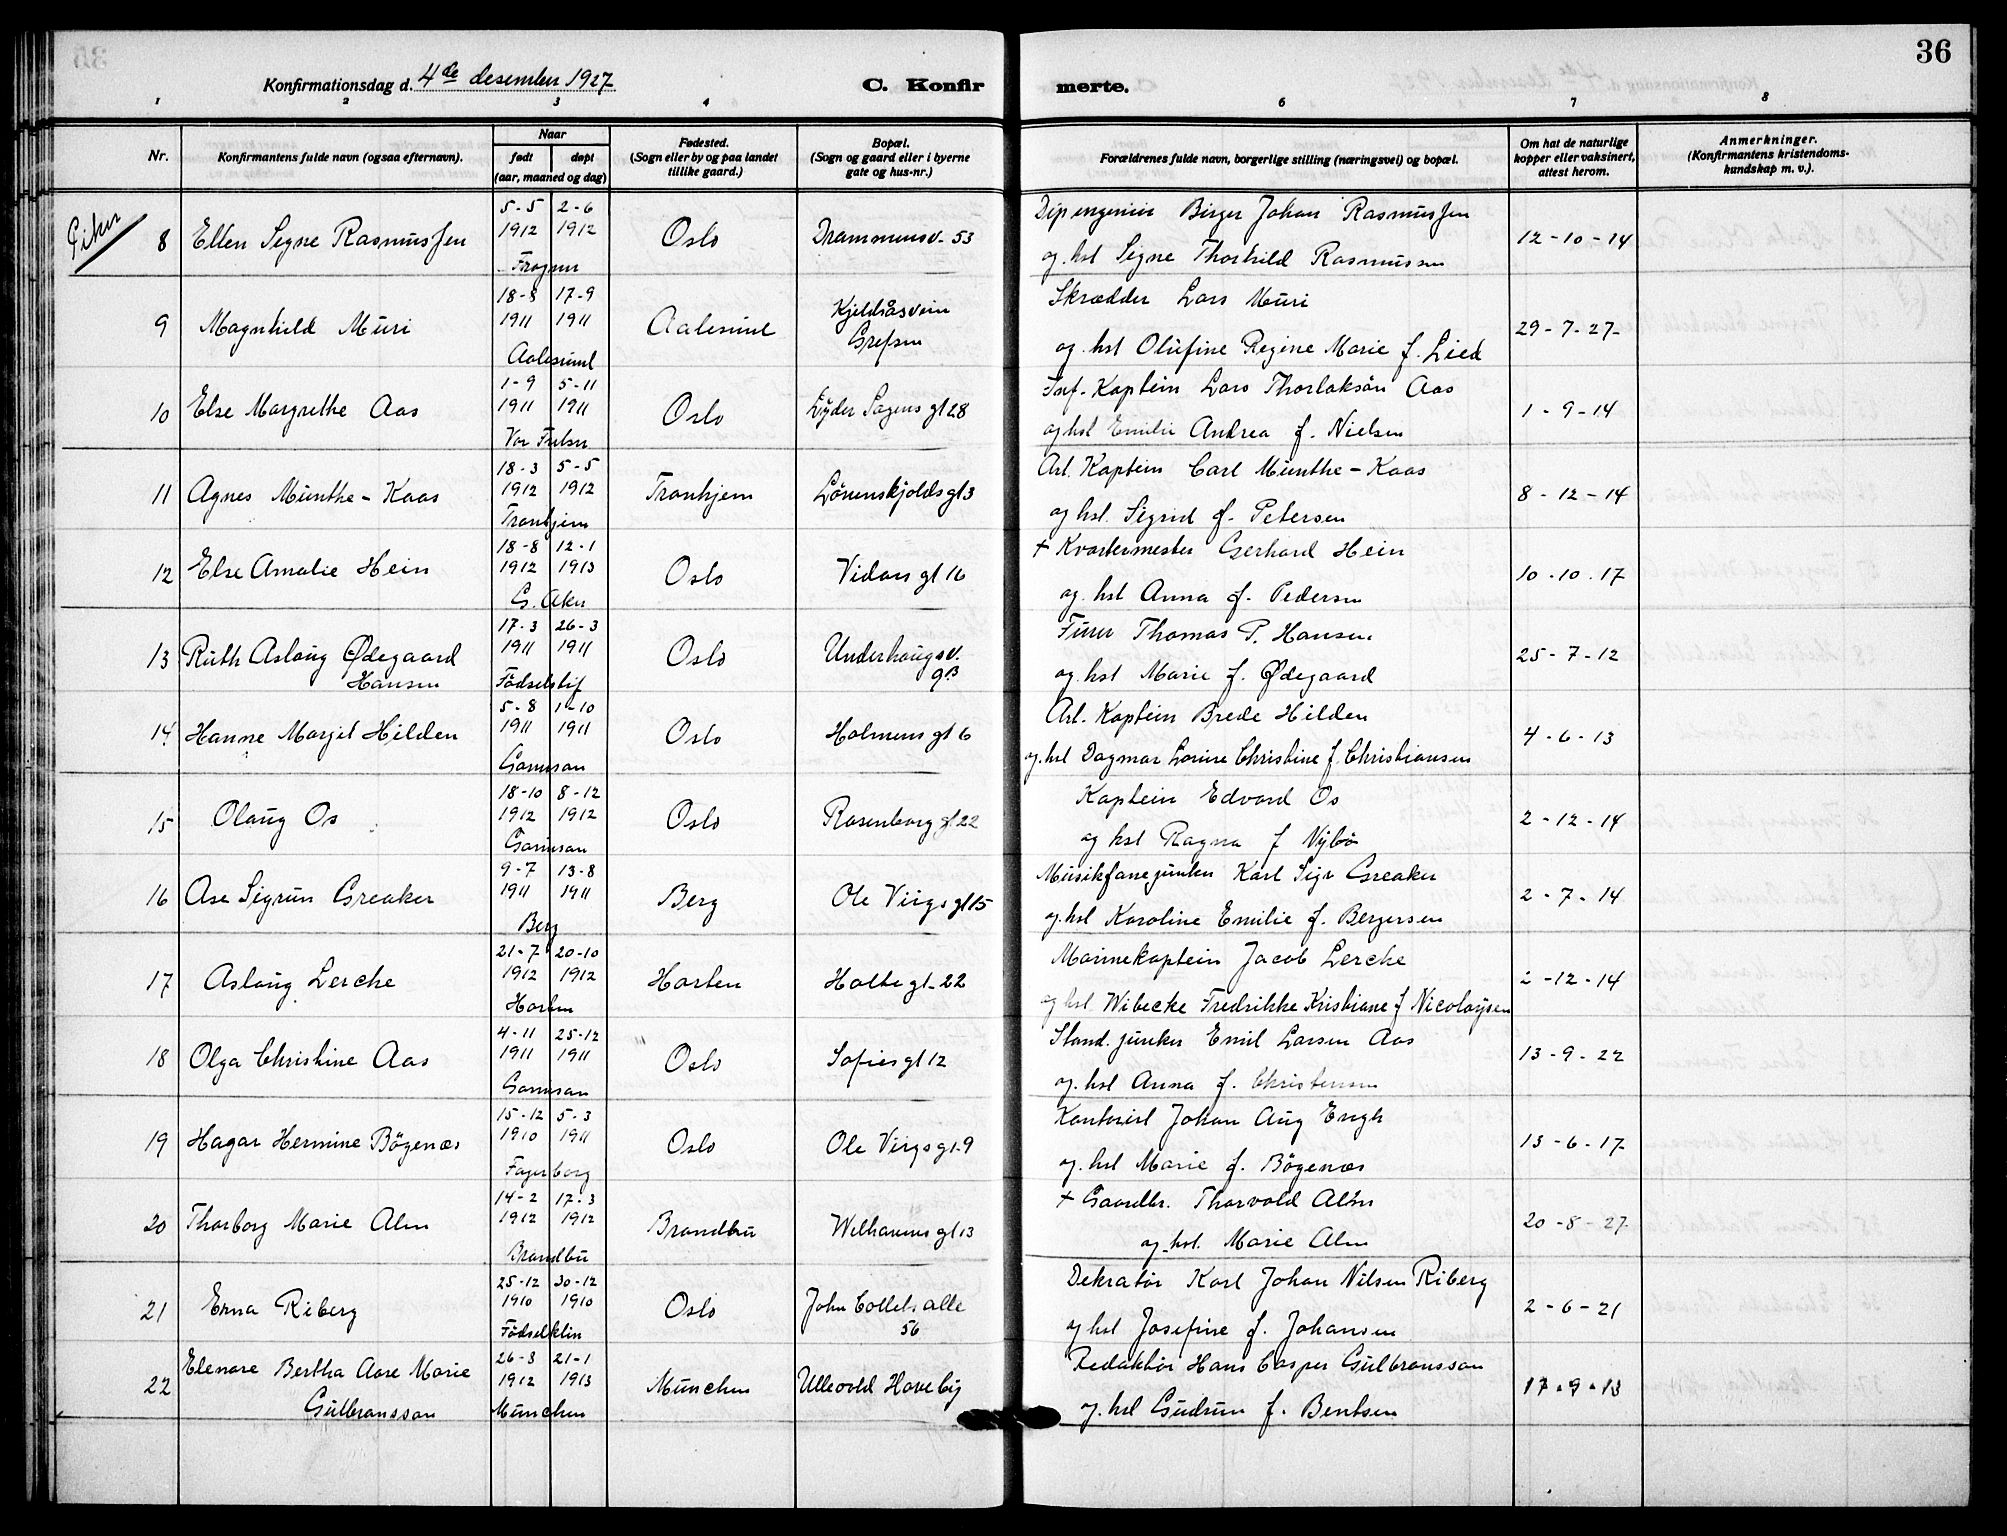 36
Konfirmationsdag d. 4de desember 1927
C. Konfirmerte.
1 2 3 4 6 7 8
Nr.
Konfirmantens fulde navn (ogsaa efternavn).
Naar
født døpt
(aar, maaned og dag)
Fødested.
(Sogn eller by og paa landet
tillike gaard.)
Bopæl.
(Sogn og gaard eller i byerne
gate og hus-nr.)
Forældrenes fulde navn, borgerlige stilling (næringsvei) og bopæl.
Om hat de naturlige
kopper eller vaksinert,
attest herom.
Anmerkninger.
(Konfirmantens kristendoms-
kundskap m. v.).
Piker
5-5 2-6 Dipengeniør Birger Johan Rasmussen
8 Ellen Signe Rasmussen 1912 1912 Oslo Drammensv. 53 12-10-14
Frogner og hst Signe Thorhild Rasmussen
18-8 17-9 Skrædder Lars Muri
9 Magnhild Muri 1911 1911 Aalesund Kjeldsåsveien Grefsen 29-7-27
Aalesund og hst Olufine Regine Marie f. Lied
1-9 5-11 Inf. Kaptein Lars Thorlaksön Aas
10 Else Margrethe Aas 1911 1911 Oslo Lyder Sagens gt 28 1-9-14
Vor Frelser og hst Emilie Andrea f. Nielsen
18-3 5-5 Art. Kaptein Carl Munthe-Kaas
11 Agnes Munthe-Kaas 1912 1912 Tronhjem Lövenskjolds gt 3 8-12-14
Tronhjem og hst. Sigrid f. Petersen
18-8 12-1 + Kvartermester Gerhard Hein
12 Else Amalie Hein 1912 1913 Oslo Vidars gt 16 10.10.17
G. Aker og hst Anna f. Pedersen
17-3 26-3 Furer Thomas P. Hansen
13 Ruth Aslaug Ødegaard 1911 1911 Oslo Underhaugsv. 25-7-12
Hansen Födselstif 9B og hst Marie f. Ødegaard
5-8 1-10 Art. Kaptein Brede Hilden
14 Hanne Margit Hilden 1911 1911 Oslo Holmens gt 6 4-6-13
Garnison og hst Dagmar Lovise Christine f. Christiansen
18-10 8-12 Kaptein Edvard Os
15 Olaug Os 1912 1912 Oslo Rosenborg gt 22 2-12-14
Garnison og hst Ragna f Nybö
9-7 13-8 Musikfanejunker Karl Sigv Greaker
16 Ase Sigrun Greaker 1911 1911 Berg Ole Vigs gt 15 2-7-14
Berg og hst Karoline Emilie f. Bergersen
21-7 20-10 Marinekaptein Jacob Lerche
17 Aslaug Lerche 1912 1912 Horten Holte gt. 22 2-12-14
Horten og hst Wibecke Fredrikke Kristiane f Nicolaysen
4-11 25-12 Stand. junker Emil Larsen Aas
18 Olga Christine Aas 1911 1911 Oslo Sofies gt 12 13-9-22
Garnison og hst Anna f. Christensen
15-12 5-3 Kontorist Johan Aug Engh
19 Hagar Hermine Bögenæs 1910 1911 Oslo Ole Vigs gt. 9 13-6-17
Fagerborg og hst Marie f. Bögenæs
14-2 17-3 + Gaardbr. Thorvald Alm
20 Thorborg Marie Alm 1912 1912 Brandbu Welhavens gt 13 20-8-27
Brandbu og hst. Marie Alm
25-12 30-12 Dekratör Karl Johan Nilsen Riberg
21 Erna Riberg 1910 1910 Oslo John Collets alle 2-6-21
Födselsklin 56 og hst Josefine f. Johansen
26-3 21-1 Redaktör Hans Casper Gulbransson
22 Elenore Bertha Aase Marie 1912 1913 München Ullevold Haveby 17-9-13
Gulbransson München og hst Gudrun f. Bentsen